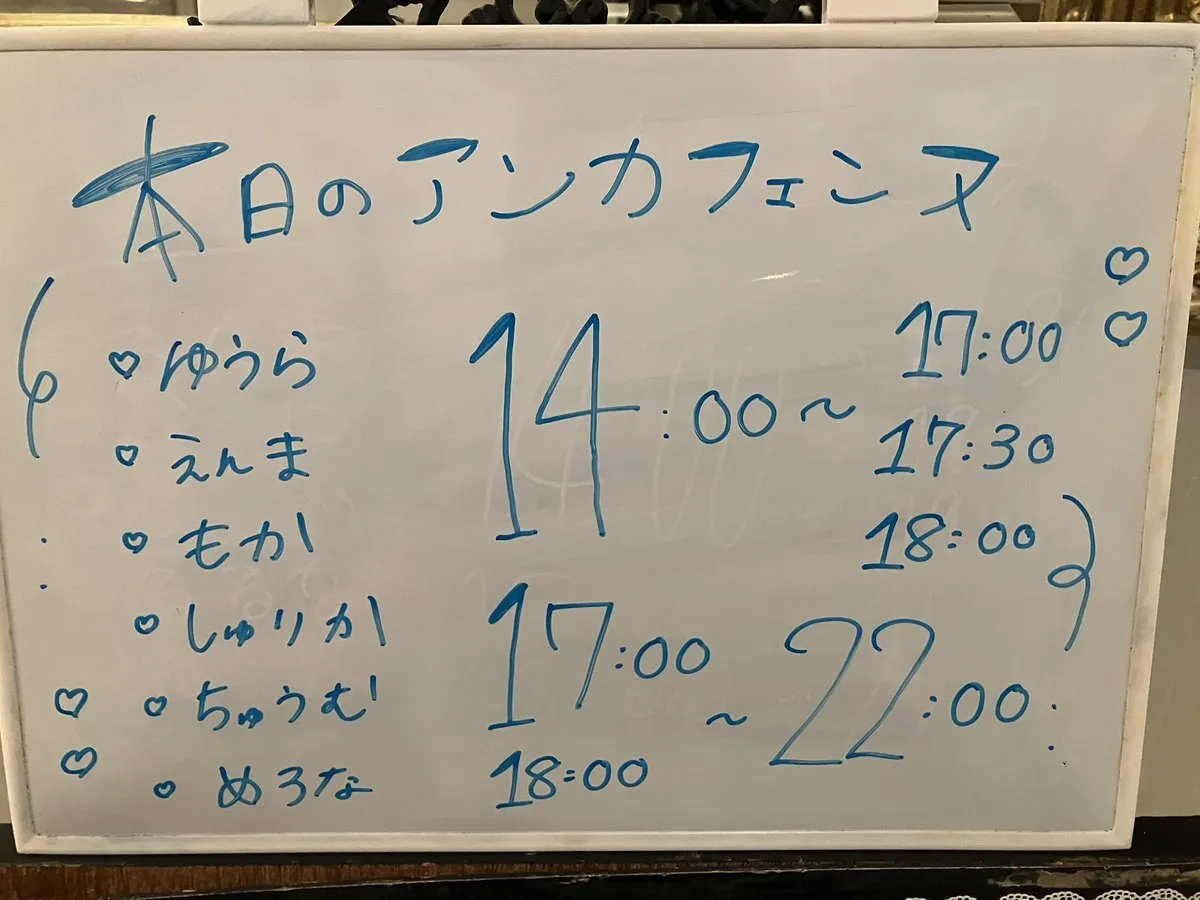 本日のアンカフェンヌ
♡ ゆうら 14:00～17:00
♡ えんま 17:30
♡ もか 18:00
♡ しゅりか 17:00
♡ ちゅうむ ～22:00
♡ めろな 18:00